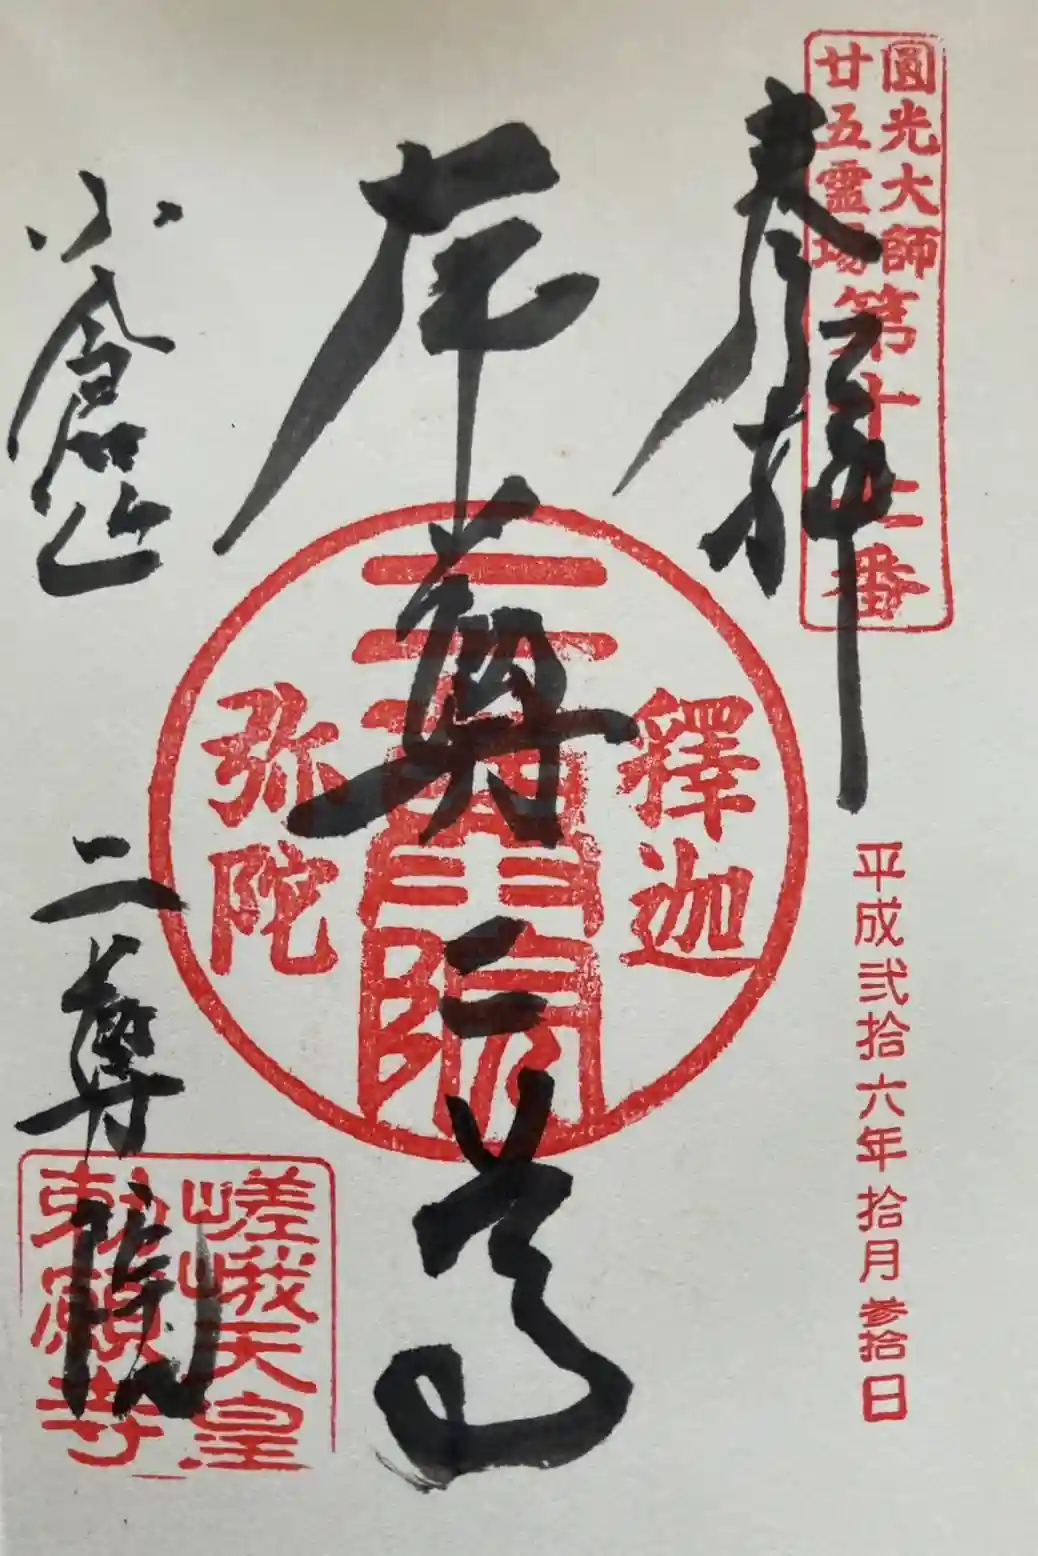 圓光大師
廿五霊場
第十七番
奉拝
平成弐拾六年拾月参拾日
本尊二尊
釋迦
弥陀
小倉山
二尊院
嵯峨天皇
勅願寺